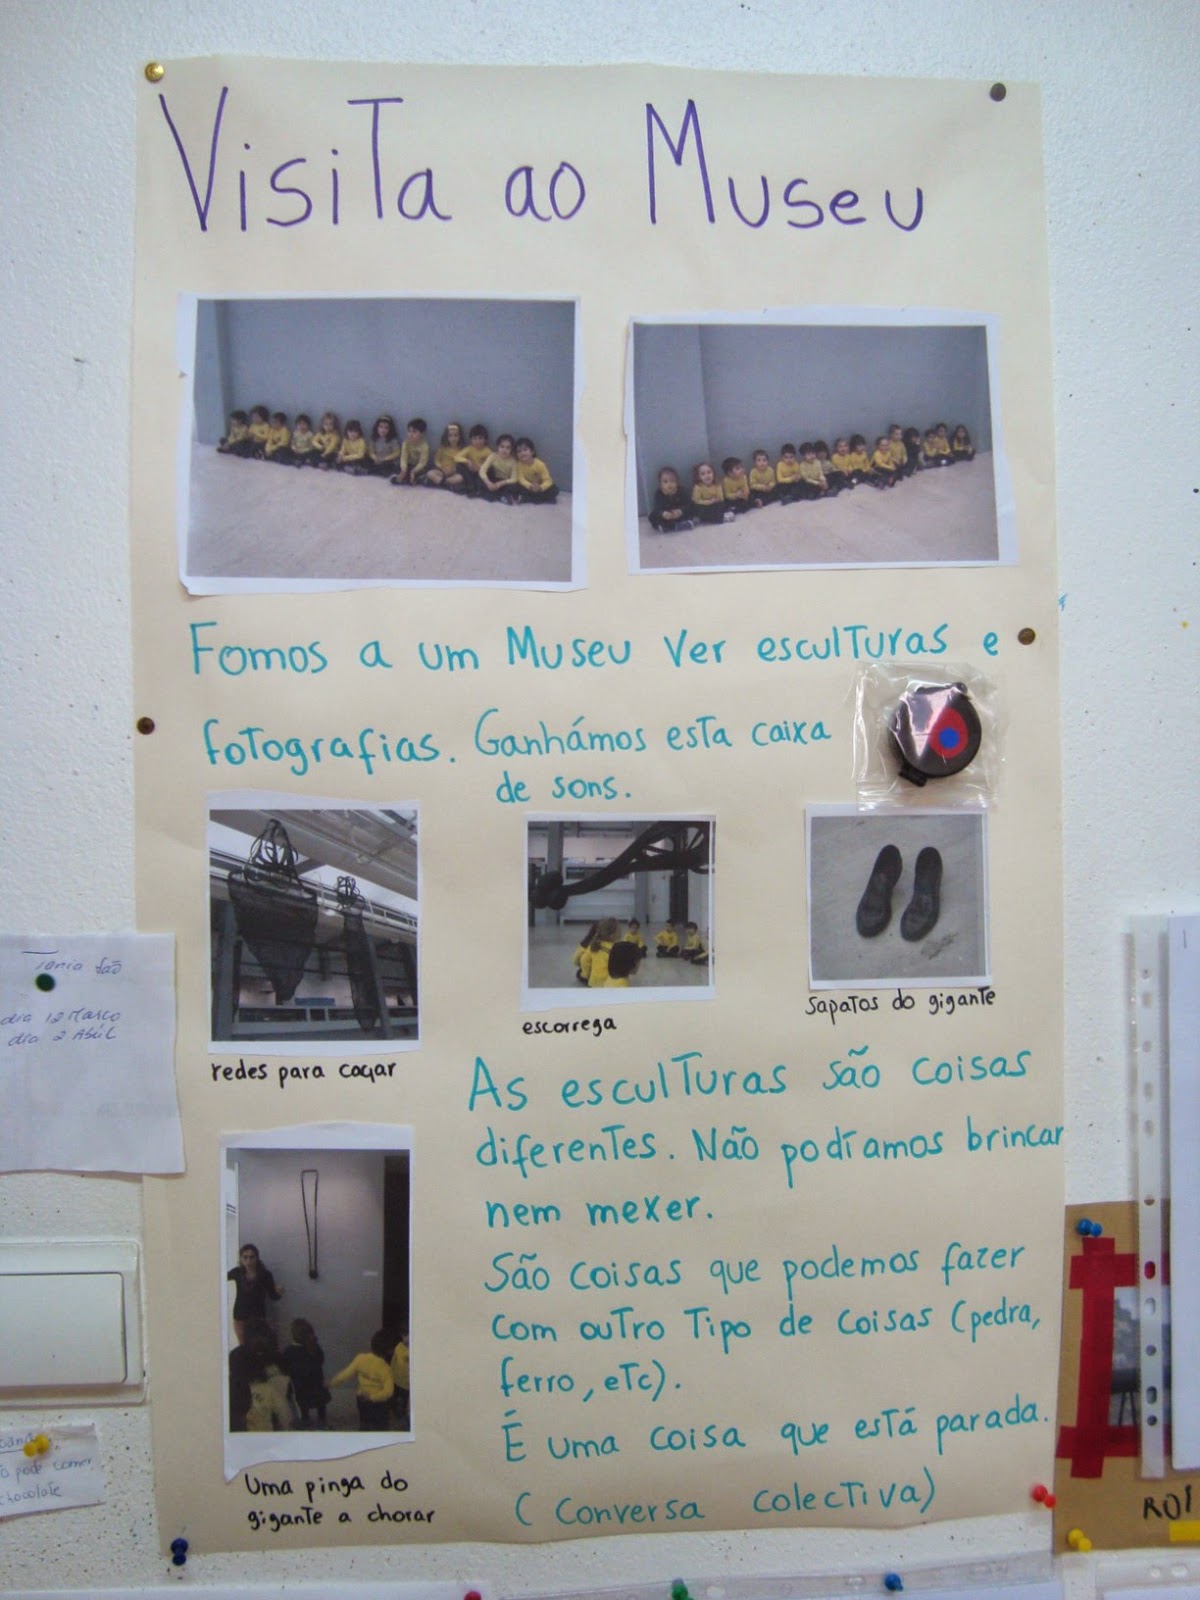 Visita ao Museu
Fomos a um Museu ver esculturas e
fotografias. Ganhámos esta caixa
de sons.
redes para caçar
escorrega
sapatos do gigante
As esculturas são coisas
diferentes. Não podíamos brincar
nem mexer.
São coisas que podemos fazer
com outro tipo de coisas (pedra,
ferro, etc).
É uma coisa que está parada.
(Conversa colectiva)
Uma pinga do
gigante a chorar
dia 12 Março
dia 2 Abril
pode comer
chocolate